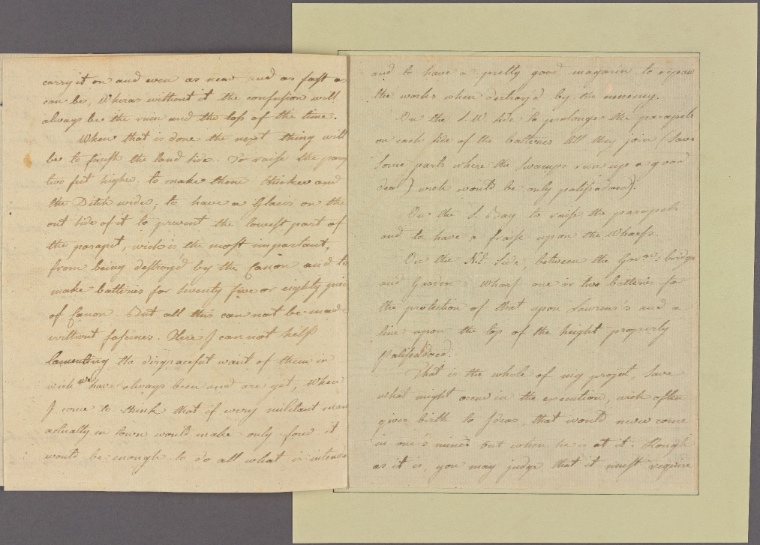 carry it on and even as near and as fast as
can be, Where without it the confusion will
always be the ruin and the loss of the time.
When that is done the next thing will
be to finish the land side. To raise the
two feet higher, to make them thicker and
the Ditch wide, to have a Glacis on the
out side of it to prevent the lowest part of
the parapet, wich is the most important,
from being destroy'd by the Canon and to
make batteries for twenty five or eighty
of Canon. but all this can not be made
without fasines. Here I cannot help
lamenting the disgraceful want of them in
wich we have always been and are yet, When
I come to think that if every militant man
actually in town would make only four it
would be enough to do all what is
and to have a pretty good magazin to repair
the works when destroy'd by the ennemy.
On the S.W. side to prolonge the parapets
on each side of the batteries till they join (save
some parts where the Swamps run up a good
) wich would be only palissadoed).
On the S. Bay to raise the parapets
and to have a fraise upon the Wharfs.
On the N.E. Side, between the Gov.rs bridge
and Wharf one or two batteries for
the protection of that upon and a
line upon the top of the height properly
Palissadoed.
That is the whole of my projet, save
what might occur in the execution, wich often
gives birth to Ideas, that would never come
in one's mind but when he is at it. though
as it is, you may judge that it must require